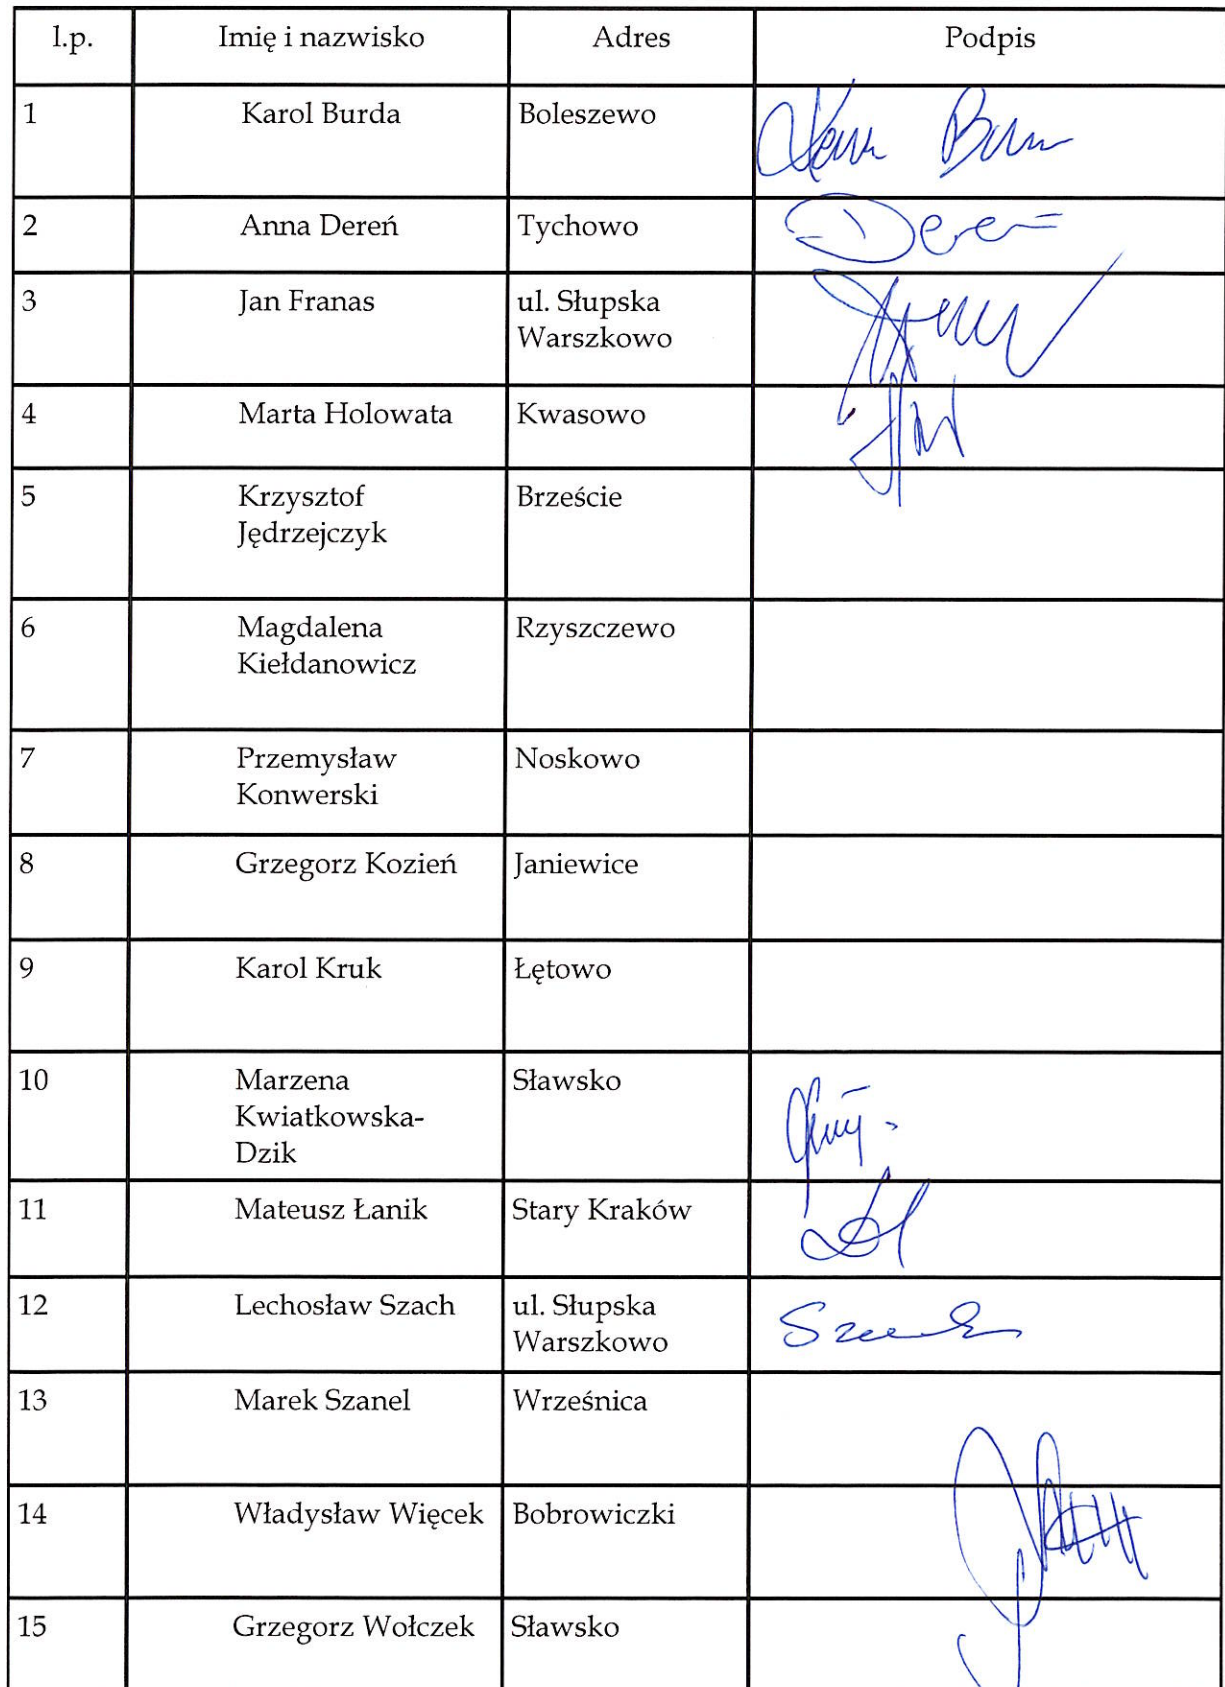 l.p. Imię i nazwisko Adres Podpis
1 Karol Burda Boleszewo
2 Anna Dereń Tychowo Dereń
3 Jan Franas ul. Słupska
Warszkowo
4 Marta Holowata Kwasowo
5 Krzysztof Brzeście
Jędrzejczyk
6 Magdalena Rzyszczewo
Kiełdanowicz
7 Przemysław Noskowo
Konwerski
8 Grzegorz Kozień Janiewice
9 Karol Kruk Łętowo
10 Marzena Sławsko
Kwiatkowska-
Dzik
11 Mateusz Łanik Stary Kraków
12 Lechosław Szach ul. Słupska
Warszkowo
13 Marek Szanel Wrześnica
14 Władysław Więcek Bobrowiczki
15 Grzegorz Wołczek Sławsko